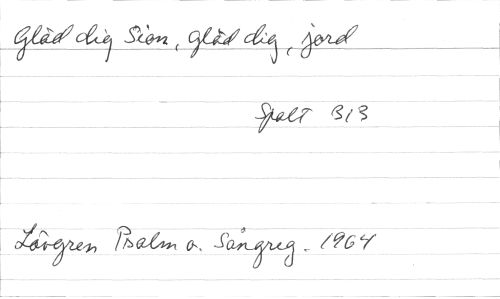 Gläd dig Sion, gläd dig, jord
Spalt 313
Lövgren Psalm o. Sångreg. 1964